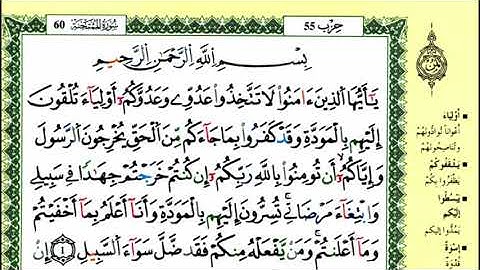 حِزْب 55
سُورَةُ المُمْتَحِنَةِ 60
بِسْمِ اِللَّهِ اِلرَّحْمَٰنِ اِلرَّحِيمِ
يَٰٓأَيُّهَا اَلذِينَ ءَامَنُواْ لَا تَتَّخِذُواْ عَدُوِّے وَعَدُوَّكُمُۥٓ أَوْلِيَآءَ تُلْقُونَ
إِلَيْهِم بِالْمَوَدَّةِ وَقَدْ كَفَرُواْ بِمَا جَآءَكُم مِّنَ اَلْحَقِّ يُخْرِجُونَ اَلرَّسُولَ
وَإِيَّاكُمُۥٓ أَن تُومِنُواْ بِاللَّهِ رَبِّكُمُۥٓ إِن كُنتُمْ خَرَجْتُمْ جِهَٰداٗ فِے سَبِيلِے
وَابْتِغَآءَ مَرْضَاتِے تُسِرُّونَ إِلَيْهِم بِالْمَوَدَّةِ وَأَنَآ أَعْلَمُ بِمَآ أَخْفَيْتُمْ
وَمَآ أَعْلَنتُمْ وَمَنْ يَّفْعَلْهُ مِنكُمْ فَقَد ضَّلَّ سَوَآءَ اَلسَّبِيلِ ١ إِنْ
أَوْلِيَاءَ
أعْوَاناً تُوَادُّونَهُمْ
وتُنَاصِحُونَهُمْ
يَثْقَفُوكُمْ
يَظْفَرُوا بِكُمْ
يَبْسُطُوا
إِلَيْكُم
يَمُدُّوا إلَيْكُمْ
إِسْوَةٌ
قُدْوَةٌ